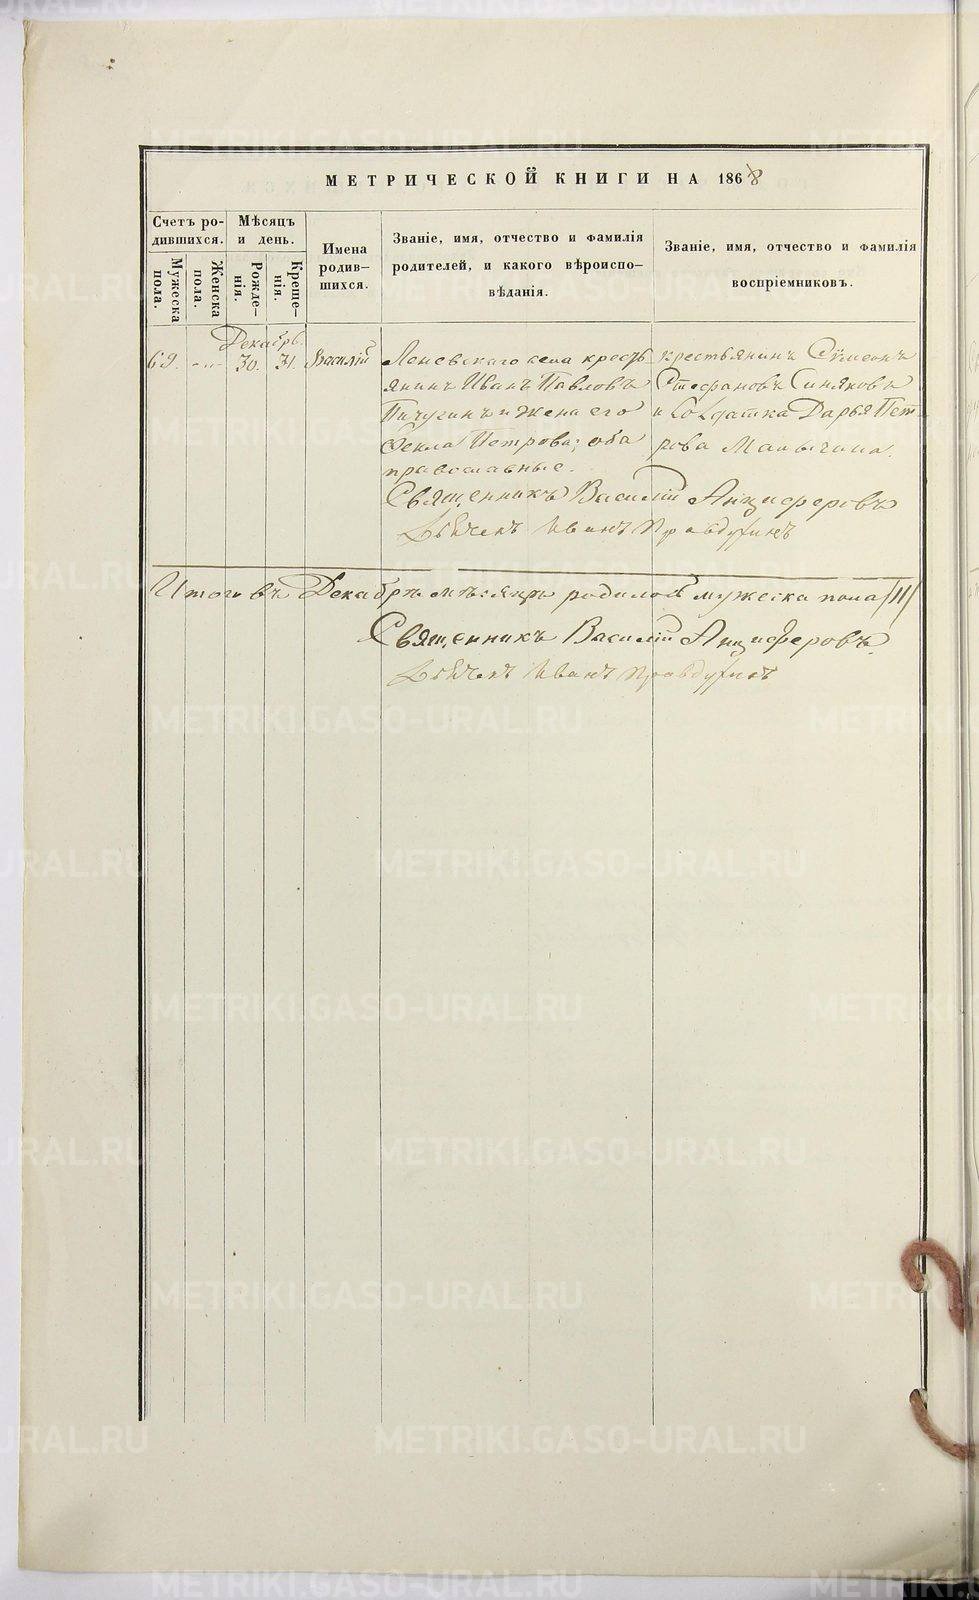 МЕТРИЧЕСКОЙ КНИГИ НА 1868
Счетъ ро-
дившихся.
Мѣсяцъ
и день.
Мужеска
пола.
Женска
пола.
Рожде-
нія.
Креще-
нія.
Имена
родив-
шихся.
Званіе, имя, отчество и фамилія
родителей, и какого вѣроиспо-
вѣданія.
Званіе, имя, отчество и фамилія
воспріемниковъ.
Декабрь.
69. -"- 30. 31. Василій
Леневскаго села кресть
янинъ Иванъ Павловъ
Пичугинъ и жена его
Фекла Петрова; оба
православные.
крестьянинъ Сѵмеонъ
Стефановъ Синяковъ
и Солдатка Дарья Пет
рова Манычина.
Священникъ Василій Анциферовъ
Дьячекъ Иванъ Правдухинъ
Итого въ Декабрѣ мѣсяцѣ родилось мужеска пола /11/
Священникъ Василій Анциферовъ.
Дьячекъ Иванъ Правдухинъ
METRIKI.GASO-URAL.RU